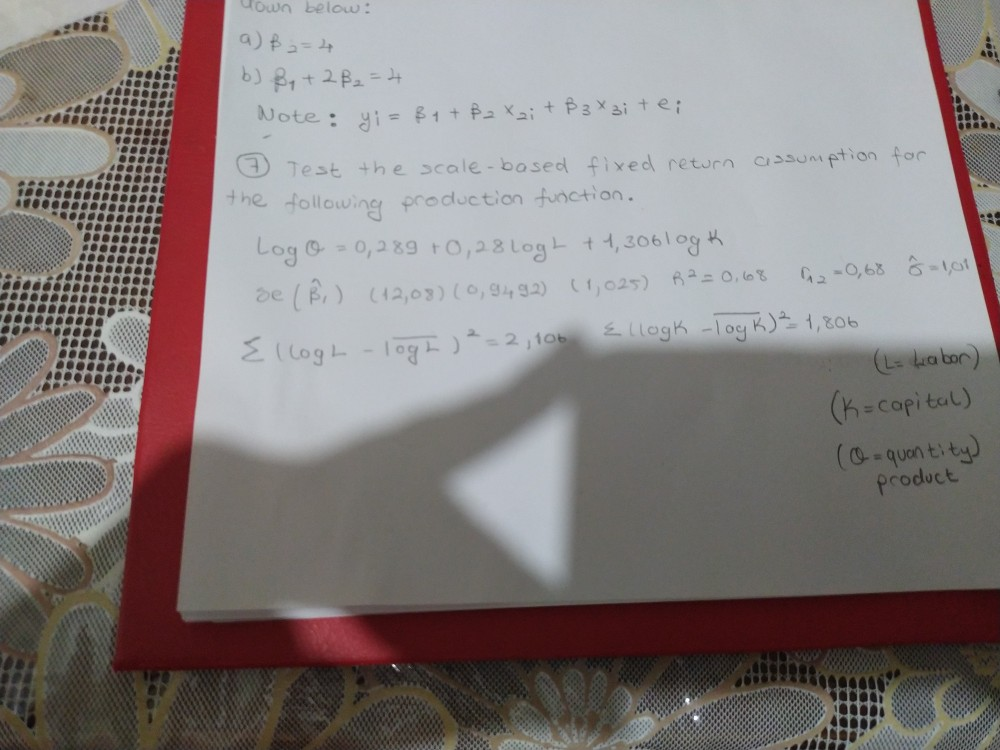 down below:
a) β2 = 4
b) β1 + 2β2 = 4
Note: yi = β1 + β2 x2i + β3 x3i + ei
⑦ Test the scale-based fixed return assumption for
the following production function.
Log Q = 0,289 + 0,28 log L + 1,306 log K
se (β̂i) (12,08) (0,9492) (1,025) R² = 0,68 r12 = 0,68 σ̂ = 1,01
Σ (log L - \overline{log L})² = 2,106 Σ (log K - \overline{log K})² = 1,806
(L = Labor)
(K = capital)
(Q = quantity)
product